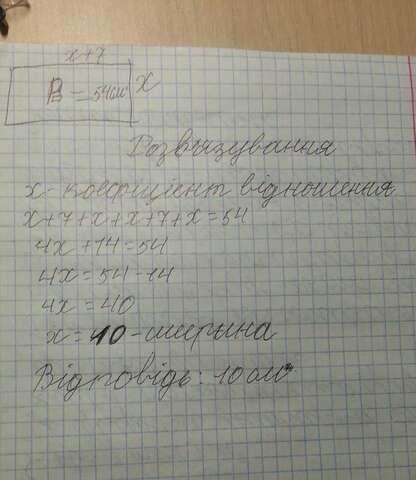 x+7
P = 54см x
Розв'язування
x - коефіцієнт відношення
x+7+x+x+7+x=54
4x+14=54
4x=54-14
4x=40
x=10-ширина
Відповідь: 10см